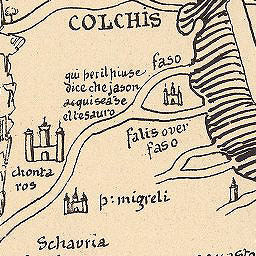 COLCHIS
faso
qui per il piu se
dice che jason
acquise a se
el tesauro
falis over
faso
chonta
ros
p: migreli
Schavria